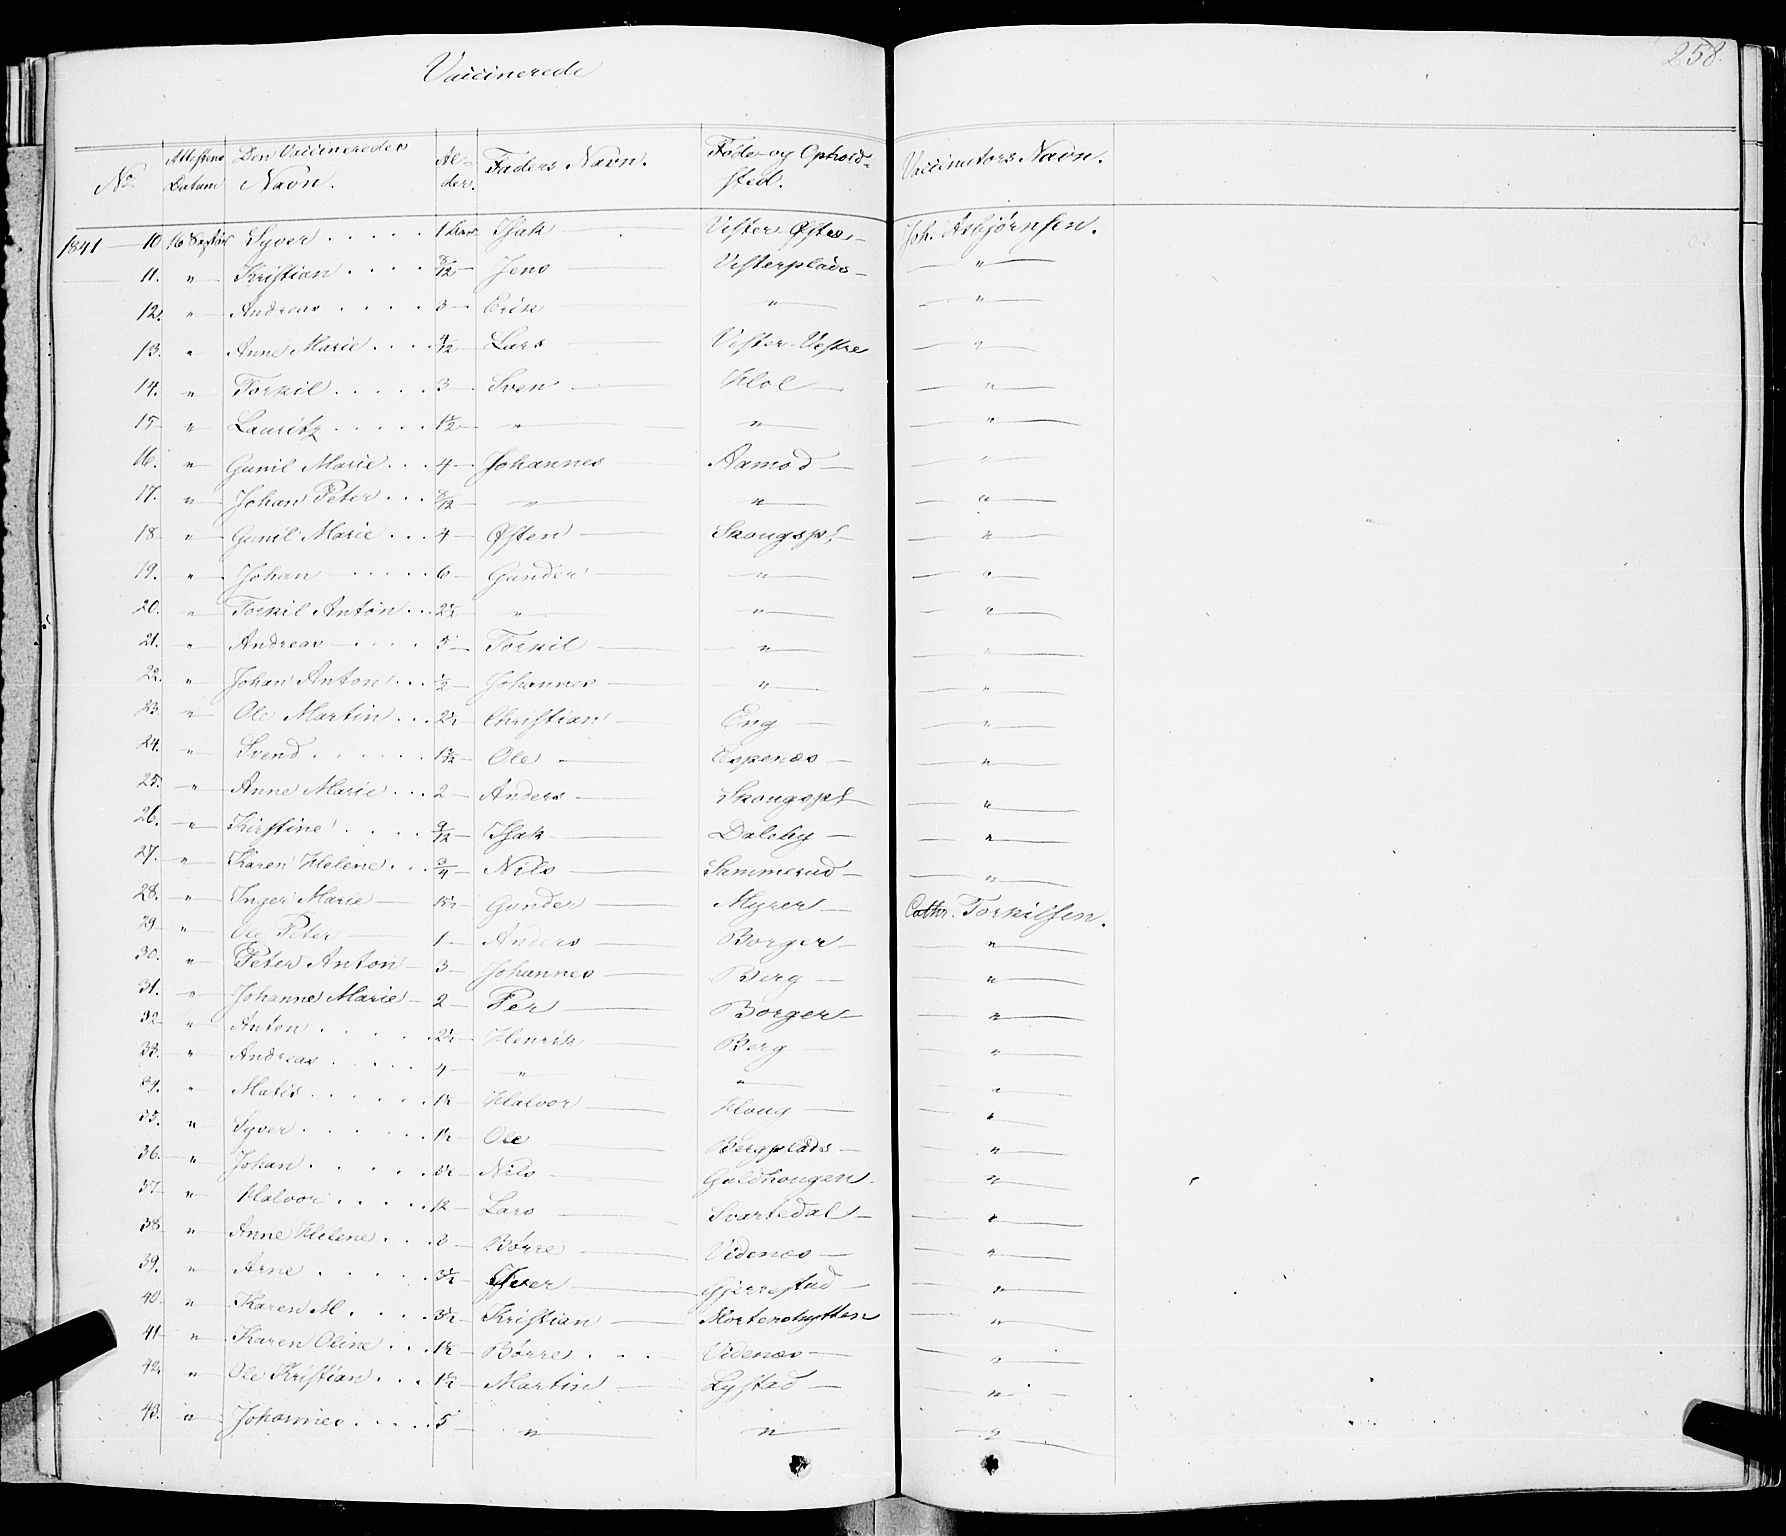 258.
Vaccinerede
No. Attestens Datum Den Vaccineredes Navn. Alder. Faders Navn. Føde- og Opholdsted. Vaccinators Navn.
1841 10 Syver 1 Isak Vister Østre Joh. Asbjørnsen.
11. " Kristian 8/12 Jens Visterplads "
12. " Andreas 3 Erik " "
13. " Anne Marie 4/12 Lars Vister Vestre "
14. " Torkil 3 Sven Hol "
15 " Lauritz 1 1/2 " " "
16. " Gunil Marie 4 Johannes Aamod "
17. " Johan Peter 8/12 " " "
18 " Gunil Marie 4 Østen Skougspl "
19. " Johan 6 Gunder " "
20. " Torkil Anton 2 1/2 " " "
21. " Andreas 5 Torkil " "
22. " Johan Anton 1/2 Johannes " "
23. " Ole Martin 2 1/2 Christian Eng "
24. " Svend Ole Espenæs "
25. " Anne Marie 2 Anders Skougspl "
26. " Kirstine 9/12 Isak Dalsby "
27. " Karen Helene 3/4 Nils Sammerud "
28. " Inger Marie Gunder Myrer Cathr. Torkilsen.
29. " Ole Peter 1 Anders Borger "
30. " Peter Anton 3 Johannes Berg "
31. " Johanne Marie 2 Per Borger "
32 " Anton 2 1/2 Henrik Berg "
33. " Andreas 4 " " "
34. " Matis 1 1/2 Halvor Houg "
35. " Syver 1 1/2 Ole Bergplads "
36. " Johan Nils Guldhougen "
37. " Halvor Lars Svartedal "
38. " Anne Helene 3 Børre Videnæs "
39. " Arne 3 1/2 Iver Gjerrestad "
40. " Karen M. 3 1/2 Kristian Mortenshytten "
41 " Karen Oline 1 1/2 Børre Videnæs "
42. " Ole Kristian 1 1/2 Martin Lystad "
43. " Johannes 5 " " "